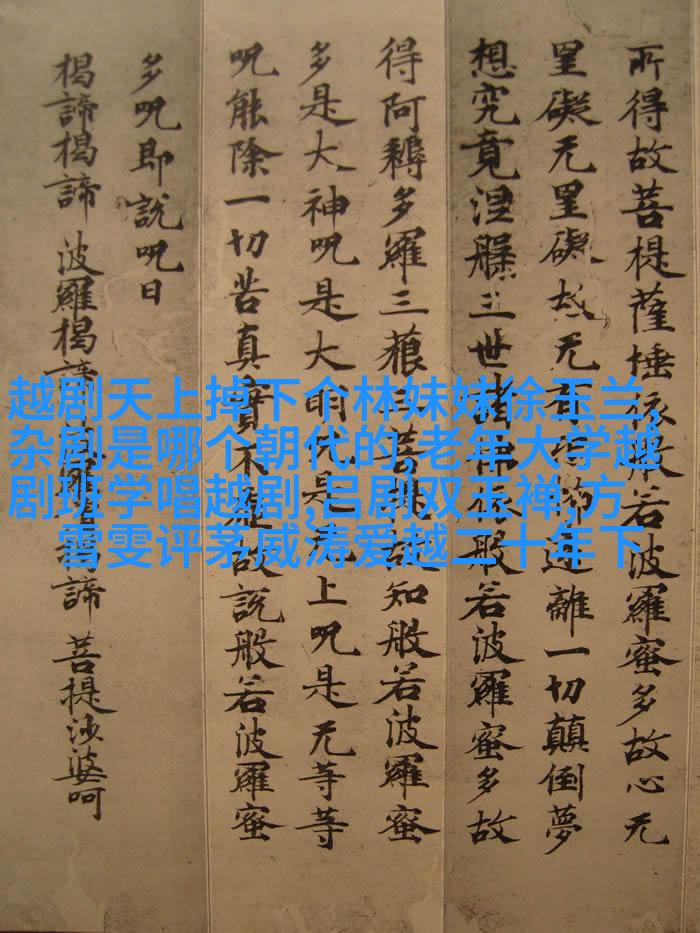 所得故菩提薩埵依般若波羅蜜多故心无
罣礙无罣礙故无有離一切顛倒夢
想究竟涅槃三世諸佛依般若波羅蜜多故
得阿耨多羅三藐三菩提故知般若波羅蜜
多是大神呪是大明呪是上呪是无等等
呪能除一切苦真實不虛故説般若波羅蜜
多呪即説呪曰
揭諦揭諦 波羅揭諦 揭諦 菩提沙婆呵
越剧天上掉下个林妹妹徐玉兰,
杂剧是哪个朝代的,老年大学越
剧班学唱越剧,吕剧双玉禅,方
雪雯评茅威涛爱越二十年下